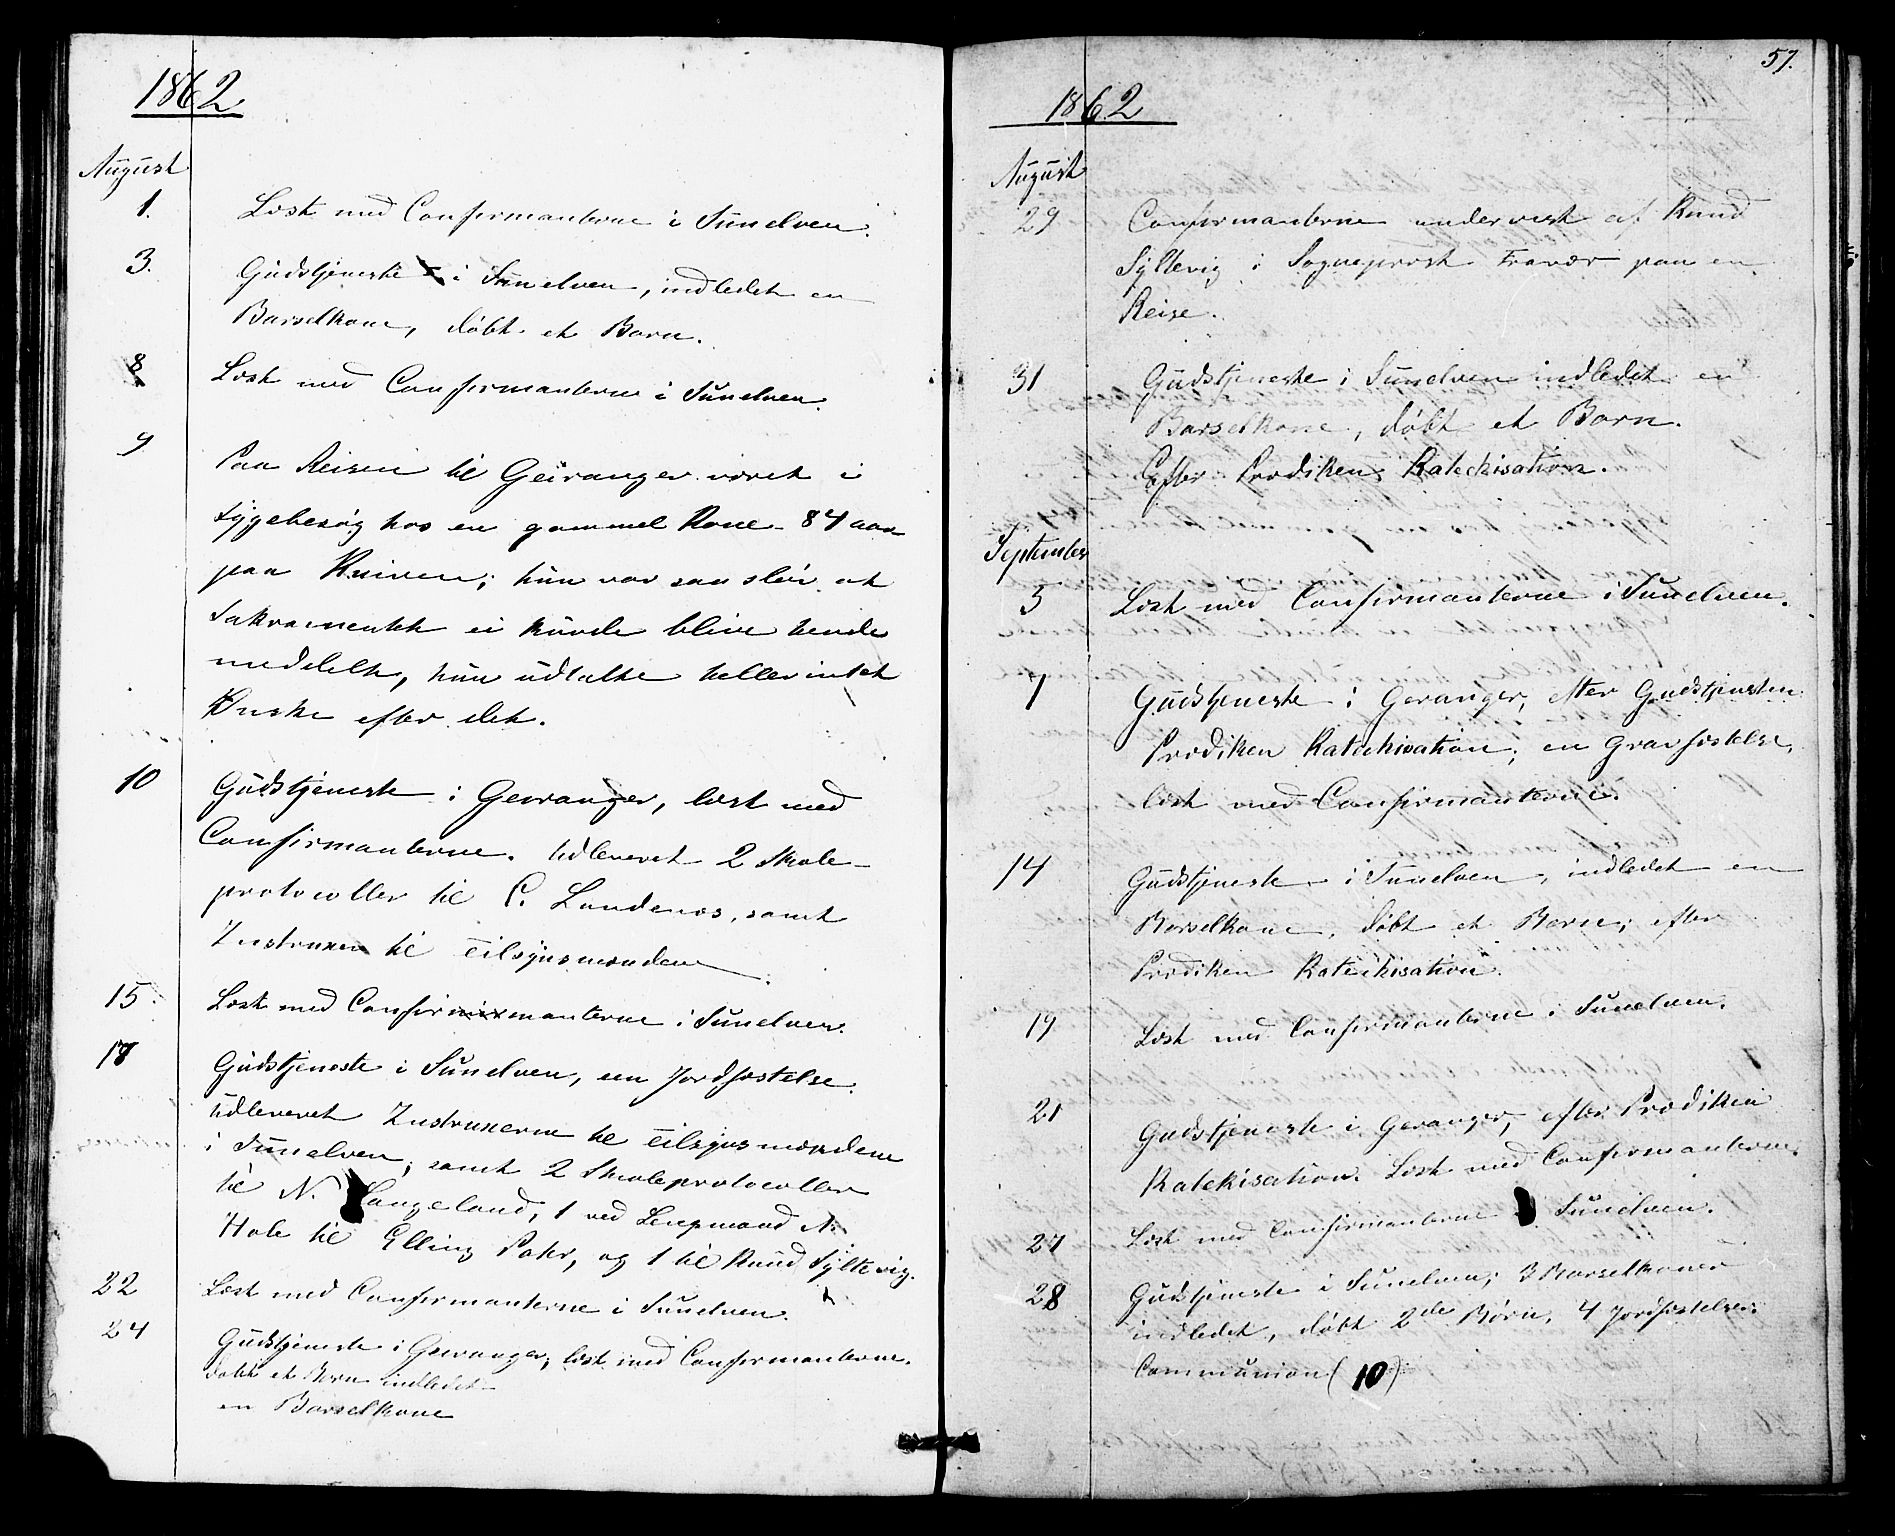 1862
August
1. Læst med Confirmanterne i Sunelven.
3. Gudstjeneste i Sunelven, indledet en
Barselkone, døbt et Barn.
8 Læst med Confirmanterne i Sunelven.
9 Paa Reisen til Geiranger været i
Sygebesøg hos en gammel Kone 84 aar
paa Kniven; hun var saa sløv at
Sakramentet ei kunde blive hende
meddelt, hun udtalte heller intet
Ønske efter det.
10 Gudstjeneste i Geiranger, læst med
Confirmanterne. Udleveret 2 Skole-
protocoller til C. Landenes, samt
Instruxen til Tilsynsmændene.
15. Læst med Confirmanterne i Sunelven.
17 Gudstjeneste i Sunelven, een Jordfæstelse.
Udleveret Instruxerne til Tilsynsmændene
i Sunelven, samt 2 Skoleprotocoller
til N. Langeland, 1 ved Lensmand N.
Hole til Elling , og 1 til Knud Syltevig.
22 Læst med Confirmanterne i Sunelven.
24 Gudstjeneste i Geiranger, læst med Confirmanterne.
døbt et Barn indledet
en Barselkone
57.
1862
August
29 Confirmanterne undervist af Knud
Syltevig i Sogneprest Fravær paa en
Reise.
31 Gudstjeneste i Sunelven indledet en
Barselkone, døbt et Barn.
Efter Prædiken Katechisation.
September
5 Læst med Confirmanterne i Sunelven.
7 Gudstjeneste i Geranger, etter Gudstjensten
Prædiken Katechisation; en Gravfæstelse,
læst med Confirmanterne.
14 Gudstjeneste i Sunelven, indledet en
Barselkone, døbt et Barn; efter
Prædiken Katechisation.
19 Læst med Confirmanterne i Sunelven.
21 Gudstjeneste i Geranger, efter Prædiken
Katekisation. Læst med Confirmanterne.
27 Læst med Confirmanterne Sunelven.
28 Gudstjeneste i Sunelven; 3 Barselkoner
indledet, døbt 2de Børn, 4 Jordfæstelser.
Communion (10)